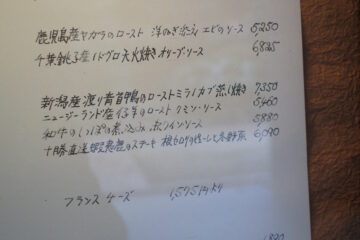 鹿児島産ヤガラのロースト 洋ねぎ添え エビのソース 5,250
千葉銚子産ノドグロ天火焼き オリーブ・ソース 6,825
新潟産渡り青首鴨のロースト ミラノカブ蒸し焼き 7,350
ニュージーランド産仔羊のロースト クミン・ソース 5,460
和牛のしっぽの煮込み 赤ワインソース 5880
十勝直送蝦夷鹿のステーキ 根セロリの 冬野菜 6,090
フランスチーズ 1,575円より